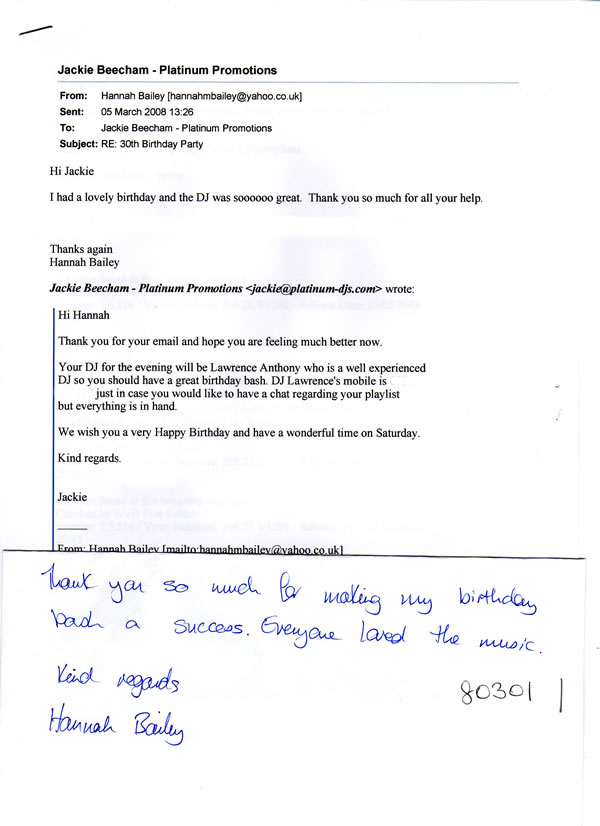 Jackie Beecham - Platinum Promotions
From: Hannah Bailey [hannahmbailey@yahoo.co.uk]
Sent: 05 March 2008 13:26
To: Jackie Beecham - Platinum Promotions
Subject: RE: 30th Birthday Party
Hi Jackie
I had a lovely birthday and the DJ was soooooo great. Thank you so much for all your help.
Thanks again
Hannah Bailey
Jackie Beecham - Platinum Promotions <jackie@platinum-djs.com> wrote:
Hi Hannah
Thank you for your email and hope you are feeling much better now.
Your DJ for the evening will be Lawrence Anthony who is a well experienced
DJ so you should have a great birthday bash. DJ Lawrence's mobile is
just in case you would like to have a chat regarding your playlist
but everything is in hand.
We wish you a very Happy Birthday and have a wonderful time on Saturday.
Kind regards.
Jackie
From: Hannah Bailey [mailto:hannahmbailey@yahoo.co.uk]
Thank you so much for making my birthday
bash a success. Everyone loved the music.
Kind regards
80301
Hannah Bailey